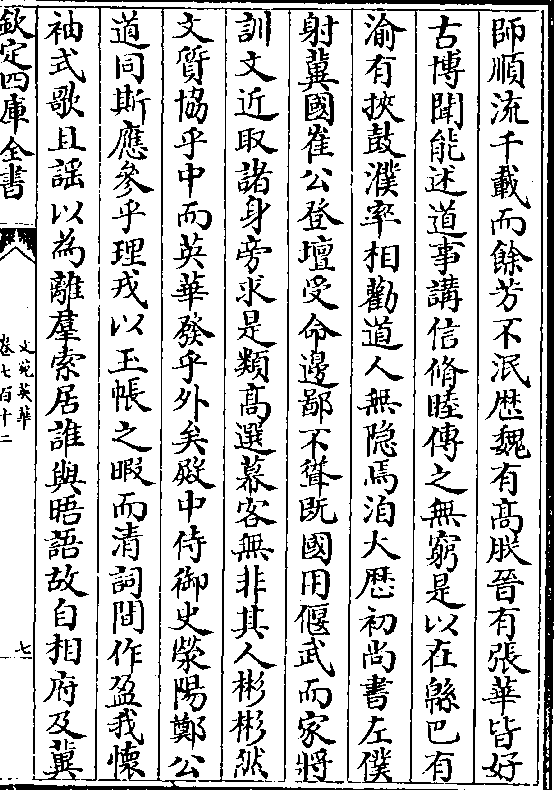 師順流千載而餘芳不泯歴魏有髙朕晉有張華皆好
古博聞能述道事講信脩睦傳之無窮是以在緜巴有
渝有挾鼓濮率相勸道人無隐焉洎大歴初尚書左僕
射冀國崔公登壇受命邊鄙不聳既國用偃武而家將
訓文近取諸身旁求是類髙選幕客無非其人彬彬然
文質協乎中而英華發乎外矣殿中侍御史滎陽鄭公
道同斯應參乎理戎以玉帳之暇而清詞間作盈我懷
袖式歌且謡以為離羣索居誰與晤語故自相府及冀
欽定四庫全書
文苑英華
卷七百十二
七